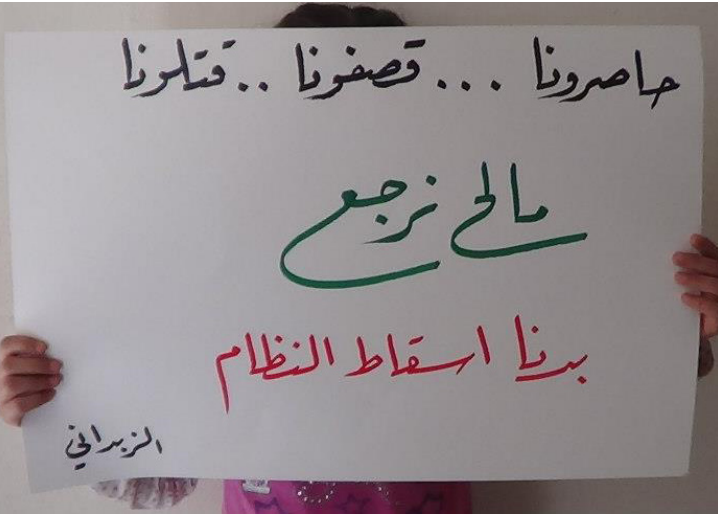 حاصرونا ... قصفونا .. قتلونا
مالح نرجع
بدنا اسقاط النظام
الزبداني